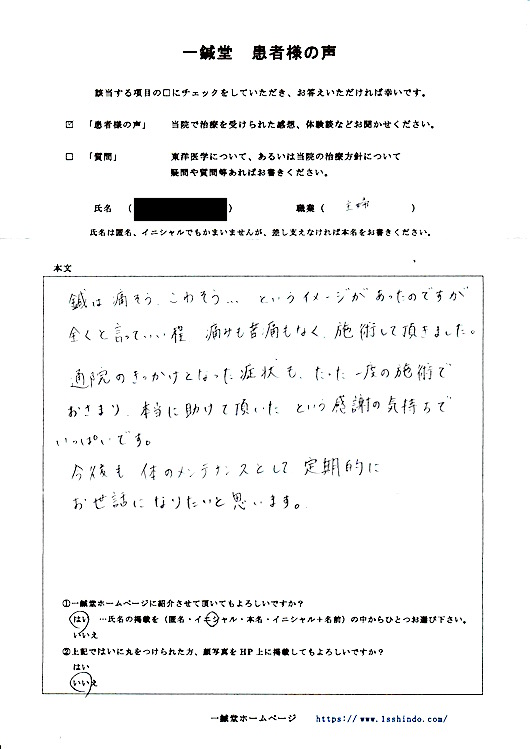 一鍼堂 患者様の声
該当する項目の□にチェックをしていただき、お答えいただければ幸いです。
☑ 「患者様の声」 当院で治療を受けられた感想、体験談などお聞かせください。
□ 「質問」 東洋医学について、あるいは当院の治療方針について
疑問や質問等あればお書きください。
氏名 ( ) 職業 ( 主婦 )
氏名は匿名、イニシャルでもかまいませんが、差し支えなければ本名をお書きください。
本文
鍼は痛そう、こわそう… というイメージがあったのですが
全くと言っていい程 痛みも苦痛もなく、施術して頂きました。
通院のきっかけとなった症状も、たった一度の施術で
おさまり、本当に助けて頂いた という感謝の気持ちで
いっぱいです。
今後も 体のメンテナンスとして 定期的に
お世話になりたいと思います。
①一鍼堂ホームページに紹介させて頂いてもよろしいですか？
はい …氏名の掲載を（匿名・イニシャル・本名・イニシャル＋名前）の中からひとつお選び下さい。
いいえ
②上記ではいに丸をつけられた方、顔写真をHP上に掲載してもよろしいですか？
はい
いいえ
一鍼堂ホームページ https://www.1sshindo.com/